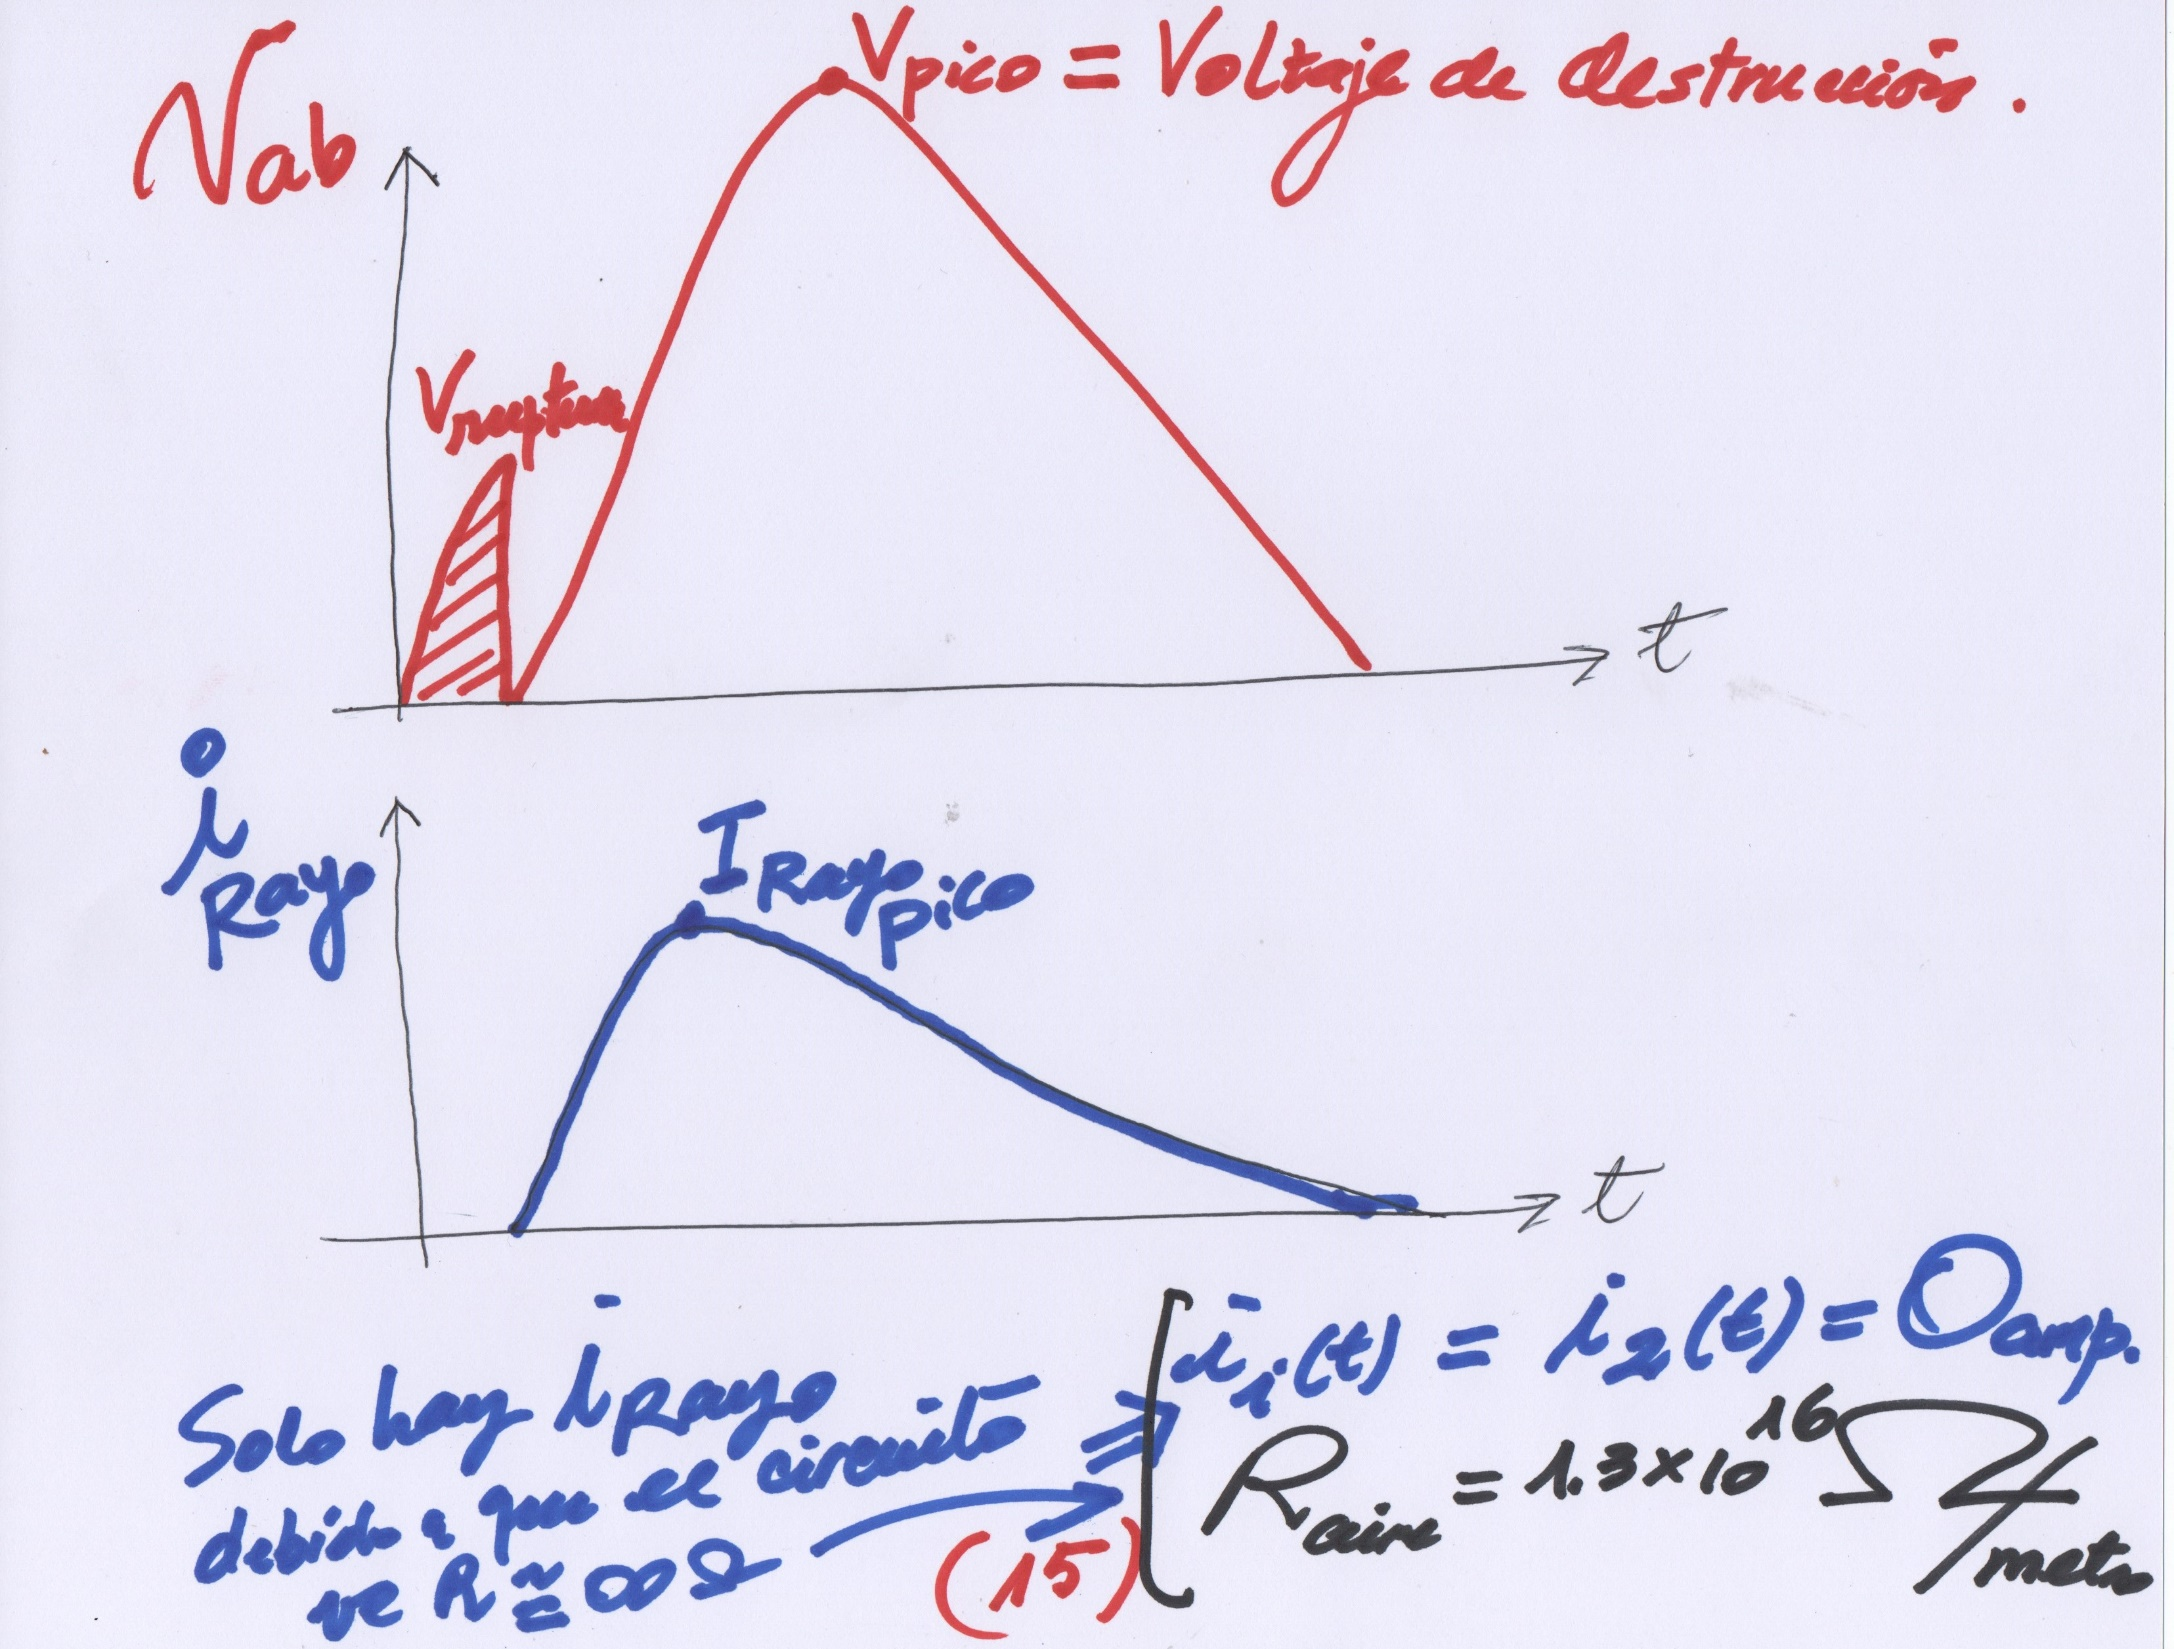 Vab
Vpico = Voltaje de destrucción.
Vruptura
t
i Rayo
I Rayo pico
t
Solo hay i Rayo
debido a que el circuito
ve R ≅ ∞ Ω
⇒
(15)
i₁(t) = i₂(t) = 0 amp.
R aire = 1.3×10¹⁶ Ω/metro